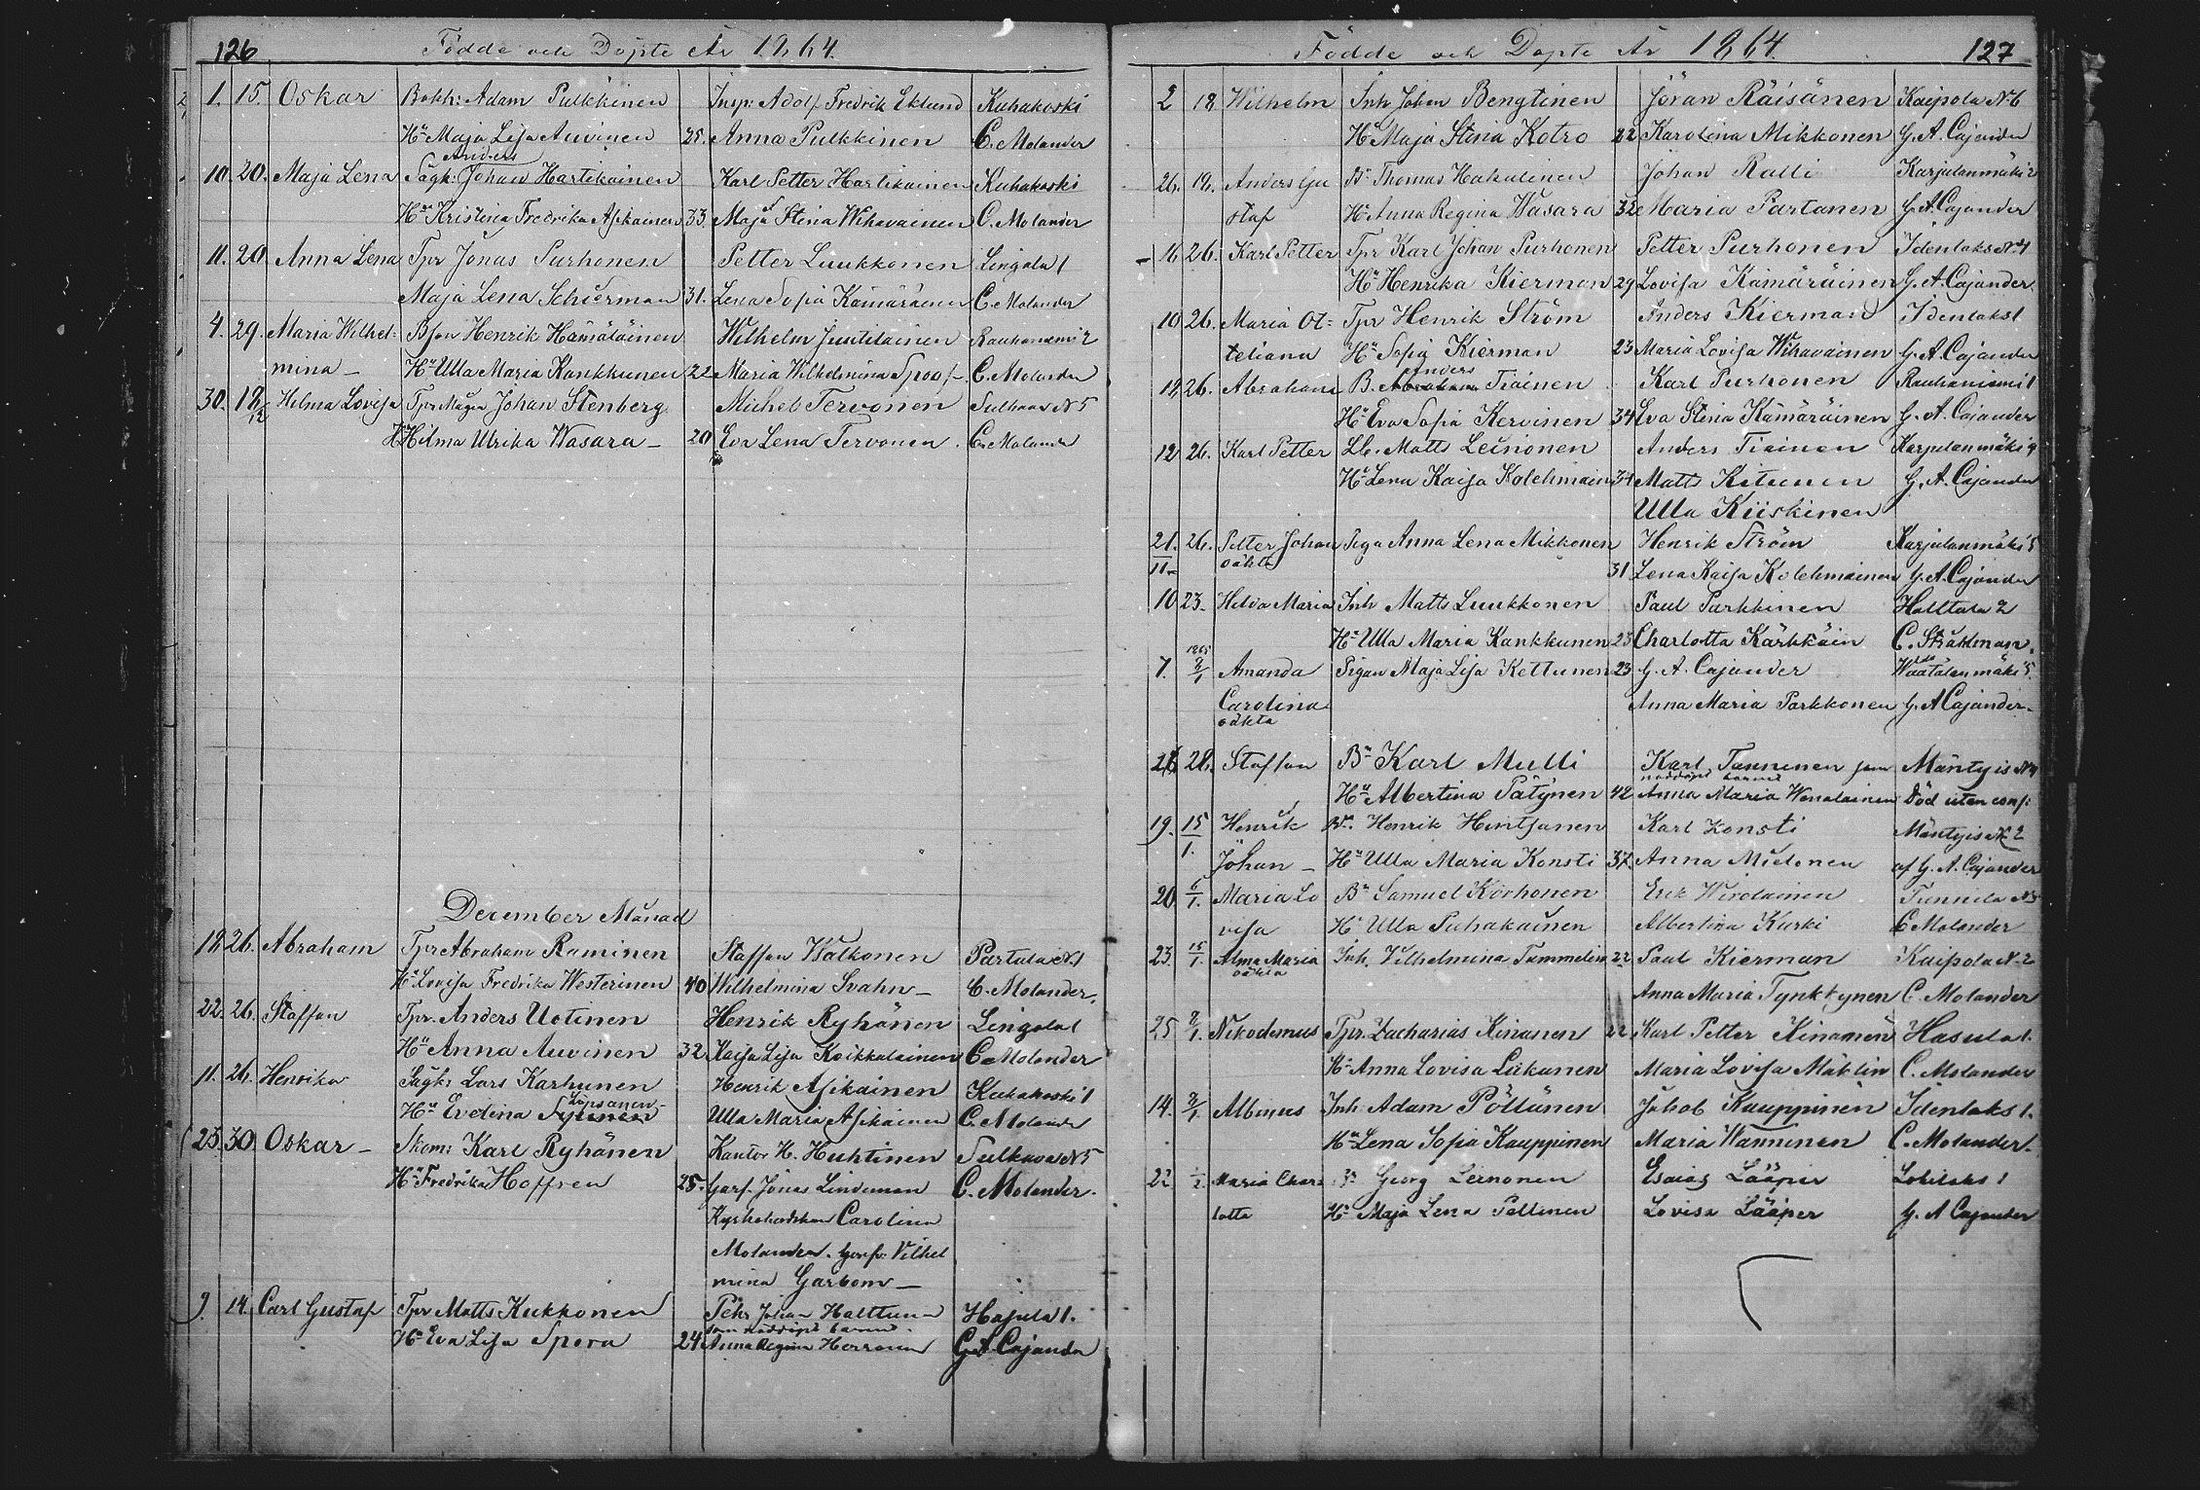 126 Födde och Döpte År 1864.
1. 15. Oskar Bokh: Adam Pulkkinen Insp: Adolf Fredrik Eklund Kuhakoski
Hu Maja Lisa Auvinen 25. Anna Pulkkinen C. Molander
Anders
10. 20. Maja Lena Sågk: Johan Hartikainen Karl Petter Hartikainen Kuhakoski
Hu Kristina Fredrika Asikainen 33. Maja Stina Wihavainen C. Molander
11. 20. Anna Lena Tpr Jonas Purhonen Petter Luukkonen Lingola 1
Maja Lena Schierman 31. Lena Sofia Kämäräinen C. Molander
4. 29. Maria Wilhel= Bson Henrik Hämäläinen Wilhelm Juutilainen Rauhaniemi 2
mina – Hu Ulla Maria Kankkunen 22 Maria Wilhelmina Spoof – C. Molander
30. 18/12 Hilma Lovisa Tpr Mågen Johan Stenberg Michel Tervonen Sulkava N 5
Hu Hilma Ulrika Wasara – 20 Eva Lena Tervonen. C. Molander
December Månad
18. 26. Abraham Tpr Abraham Raminen Staffan Walkonen Partala N. 1
Hu Lovisa Fredrika Westerinen 40 Wilhelmina Svahn – C. Molander.
22. 26. Staffan Tpr. Anders Uotinen Henrik Ryhänen Lingola 1
Hu Anna Auvinen 32 Kaisa Lisa Koikkalainen C. Molander
11. 26. Henrika Sågk: Lars Karhunen Henrik Asikainen Kuhakoski 1
Hu Evelina Ulla Maria Asikainen C. Molander
23. 30. Oskar – Skom: Karl Ryhänen Kantor H. Huhtinen Sulkava N 5
Hu Fredrika Hoffren 25. Garf. Jonas Lindeman C. Molander.
Carolina
Molander. Garfv: Vilhel
mina Garbom –
9. 14. Carl Gustaf Tpr Matts Kukkonen Johan Halttunen Hasula 1.
som nöddöpt barnet
Hu Eva Lisa Spora 24 Anna Regina Herranen G. A. Cajander
Födde och Döpte År 1864. 127
2 18 Wilhelm Inh Johan Bengtinen Jöran Räisänen Kaipola N 6
Hu Maja Stina Kotro 22 Karolina Mikkonen G. A. Cajander
26. 18. Anders Gu Bn Thomas Hakulinen Johan Ralli Karjulanmäki 2
staf Hu Anna Regina Wasara 32 Maria Partanen G. A. Cajander
16 26. Karl Petter Tpr Karl Johan Purhonen Petter Purhonen Idenlaks N 1
Hu Henrika Kierman 29 Lovisa Kämäräinen G. A. Cajander
10 26. Maria Ot= Tpr Henrik Ström Anders Kierman Idenlaks 1
teliana Hu Sofia Kierman 23 Maria Lovisa Wihavainen G. A. Cajander
Anders
18 26. Abraham B. Abraham Tiainen Karl Purhonen Rauhaniemi 1
Hu Eva Sofia Kervinen 34 Eva Stina Kämäräinen G. A. Cajander
12 26. Karl Petter Lb. Matts Leinonen Anders Tiainen Karjulanmäki 9
Hu Lena Kaisa Kolehmain 34 Matts Kitunen G. A. Cajander
Ulla Kiiskinen
21/11 26. Petter Johan Piga Anna Lena Mikkonen Henrik Ström Karjulanmäki 5
oäkta 31 Lena Kaisa Kolehmainen G. A. Cajander
10 23. Hilda Maria Inh Matts Luukkonen Paul Parkkinen Halttula 2
Hu Ulla Maria Kankkunen 23 Charlotta Kärkkäin C. Stråhlman.
1865
7. 8/1 Amanda Pigan Maja Lisa Kettunen 23 G. A. Cajander Waatalanmäki 5.
Carolina Anna Maria Parkkonen G. A Cajander –
oäkta
28. Staffan Bn Karl Mulli Karl Tanninen som Mäntyis N 4
nöddöpt barnet
Hu Albertina Pätynen 42 Anna Maria Wenäläinen Död utan conf:
19. 15/1. Henrik Bn. Henrik Hintsanen Karl Konsti Mäntyis N 2
Johan – Hu Ulla Maria Konsti 37. Anna Mielonen af G. A. Cajander
20. 6/1. Maria Lo Bn Samuel Korhonen Erik Wirolainen Tunnila N 3
visa Hu Ulla Puhakainen Albertina Kurki C Molander
23. 15/1 Alma Maria Inh. Vilhelmina Tammelin 22 Paul Kierman Kaipola N 2
oäkta Anna Maria Tynkkynen C. Molander
25. 8/1. Nikodemus Tpr. Zacharias Kinanen 22 Karl Petter Kinanen Hasula 1.
Hu Anna Lovisa Liikanen Maria Lovisa Mäklin C. Molander
14. 8/1 Albinus Inh. Adam Pöllänen Jakob Kauppinen Idenlaks 1.
Hu Lena Sofia Kauppinen Maria Wanninen C. Molander.
22 1/2 Maria Char= Georg Leinonen Esaias Lääper Lohilaks 1
lotta Hu Maja Lena Pellinen Lovisa Lääper G. A Cajander